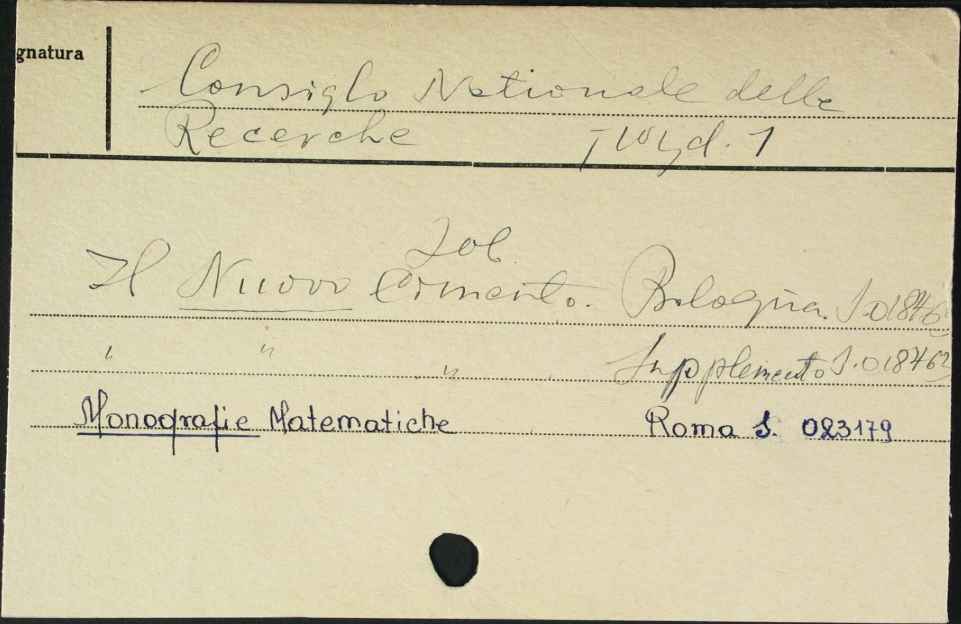 gnatura
Consiglo Nationale delle
Recerche
Il Nuovo Cimento. Bologna. S.01876
" " " Supplemento S.018762
Monografie Matematiche Roma S. 023179